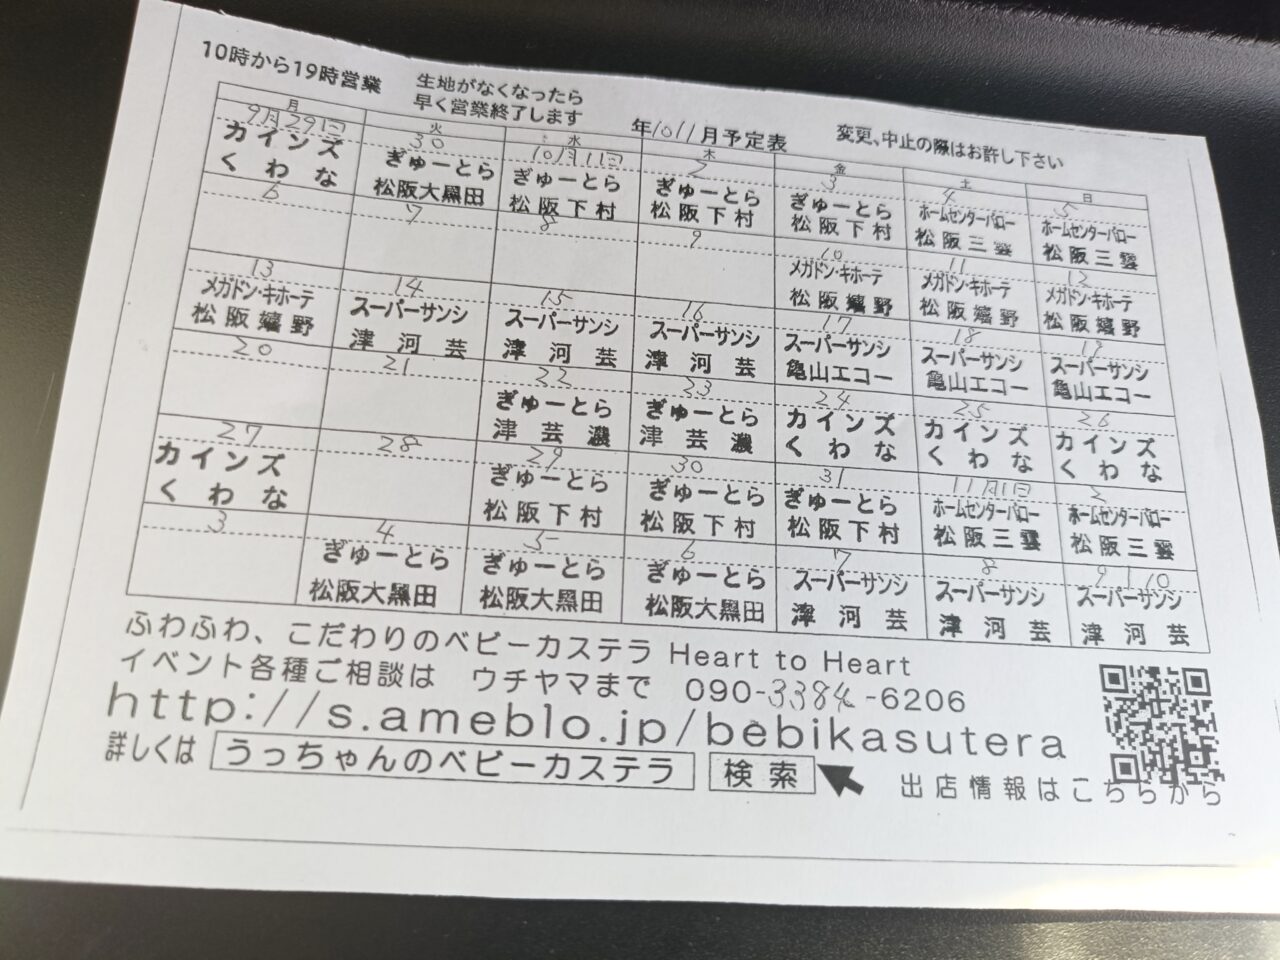 10時から19時営業
生地がなくなったら
早く営業終了します
年10 11月予定表
変更、中止の際はお許し下さい
月 火 水 木 金 土 日
9月29日 30 10月1日 2 3 4 5
カインズ ぎゅーとら ぎゅーとら ぎゅーとら ぎゅーとら ホームセンターバロー ホームセンターバロー
くわな 松阪大黒田 松阪下村 松阪下村 松阪下村 松阪三雲 松阪三雲
6 7 8 9 10 11 12
メガドン・キホーテ メガドン・キホーテ メガドン・キホーテ
松阪嬉野 松阪嬉野 松阪嬉野
13 14 15 16 17 18 19
メガドン・キホーテ スーパーサンシ スーパーサンシ スーパーサンシ スーパーサンシ スーパーサンシ スーパーサンシ
松阪嬉野 津河芸 津河芸 津河芸 亀山エコー 亀山エコー 亀山エコー
20 21 22 23 24 25 26
ぎゅーとら ぎゅーとら カインズ カインズ カインズ
津芸濃 津芸濃 くわな くわな くわな
27 28 29 30 31 11月1日 2
カインズ ぎゅーとら ぎゅーとら ぎゅーとら ホームセンターバロー ホームセンターバロー
くわな 松阪下村 松阪下村 松阪下村 松阪三雲 松阪三雲
3 4 5 6 7 8 9、10
ぎゅーとら ぎゅーとら ぎゅーとら スーパーサンシ スーパーサンシ スーパーサンシ
松阪大黒田 松阪大黒田 松阪大黒田 津河芸 津河芸 津河芸
ふわふわ、こだわりのベビーカステラ Heart to Heart
イベント各種ご相談は ウチヤマまで 090-3384-6206
http://s.ameblo.jp/bebikasutera
詳しくは うっちゃんのベビーカステラ 検索
出店情報はこちらから